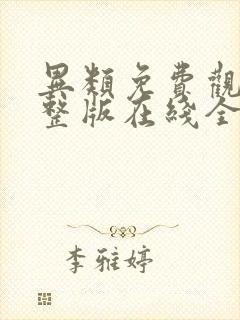 異類免費觀
整版在綫全
李雅婷